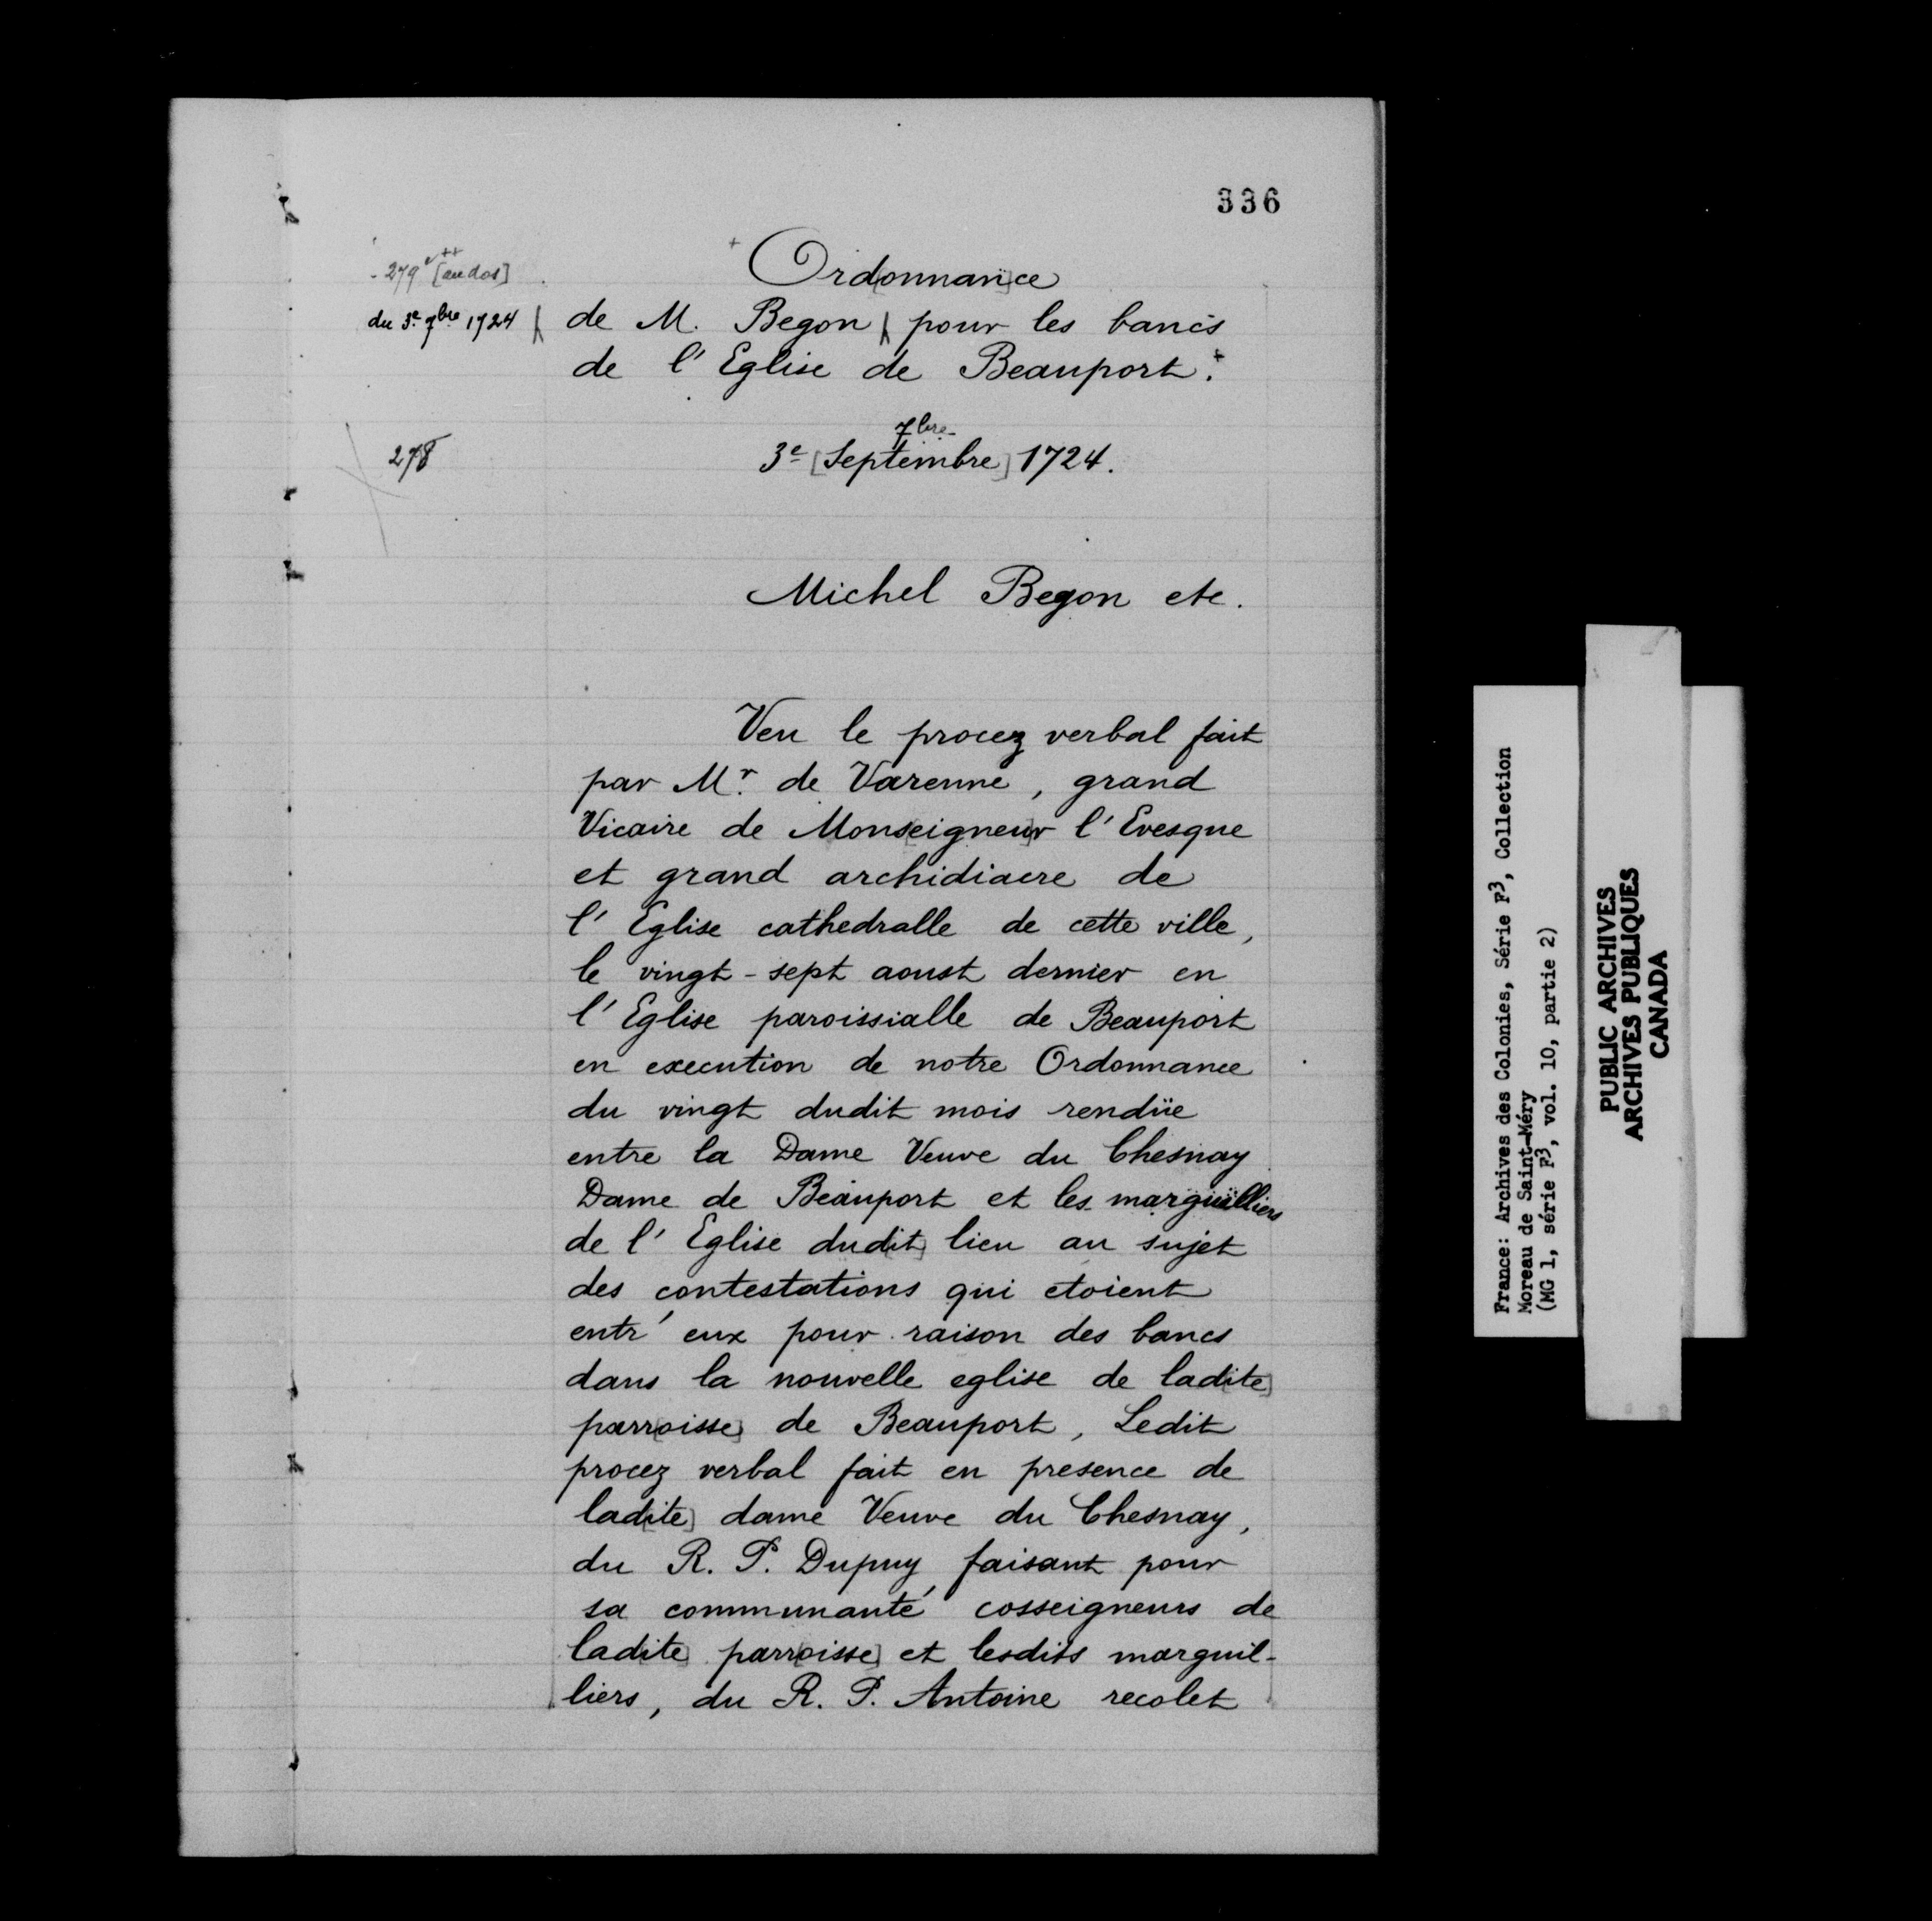 336
279 [au dos]
Ord[onnan]ce
du 3e 7bre 1724
de M. Begon pour les bancs
de l'Eglise de Beauport.
7bre
278
3e [Septembre] 1724.
Michel Begon etc.
Veu le procez verbal fait
par Mr. de Varenne, grand
Vicaire de Mons[eigneu]r l'Evesque
et grand archidiacre de
l'Eglise cathedralle de cette ville,
le vingt-sept aoust dernier en
l'Eglise paroissialle de Beauport
en execution de notre Ordonnance
du vingt dudit mois rendüe
entre la Dame Veuve du Chesnay
Dame de Beauport et les marguilliers
de l'Eglise dud[it] lieu au sujet
des contestations qui etoient
entr'eux pour raison des bancs
dans la nouvelle eglise de lad[ite]
parr[oisse] de Beauport, Ledit
procez verbal fait en presence de
lad[ite] dame Veuve du Chesnay,
du R. P. Dupuy faisant pour
sa communauté cosseigneurs de
lad[ite] parr[oisse] et lesdits marguil-
liers, du R. P. Antoine recolet
France: Archives des Colonies, Série F3, Collection
Moreau de Saint-Méry
(MG 1, série F3, vol. 10, partie 2)
PUBLIC ARCHIVES
ARCHIVES PUBLIQUES
CANADA